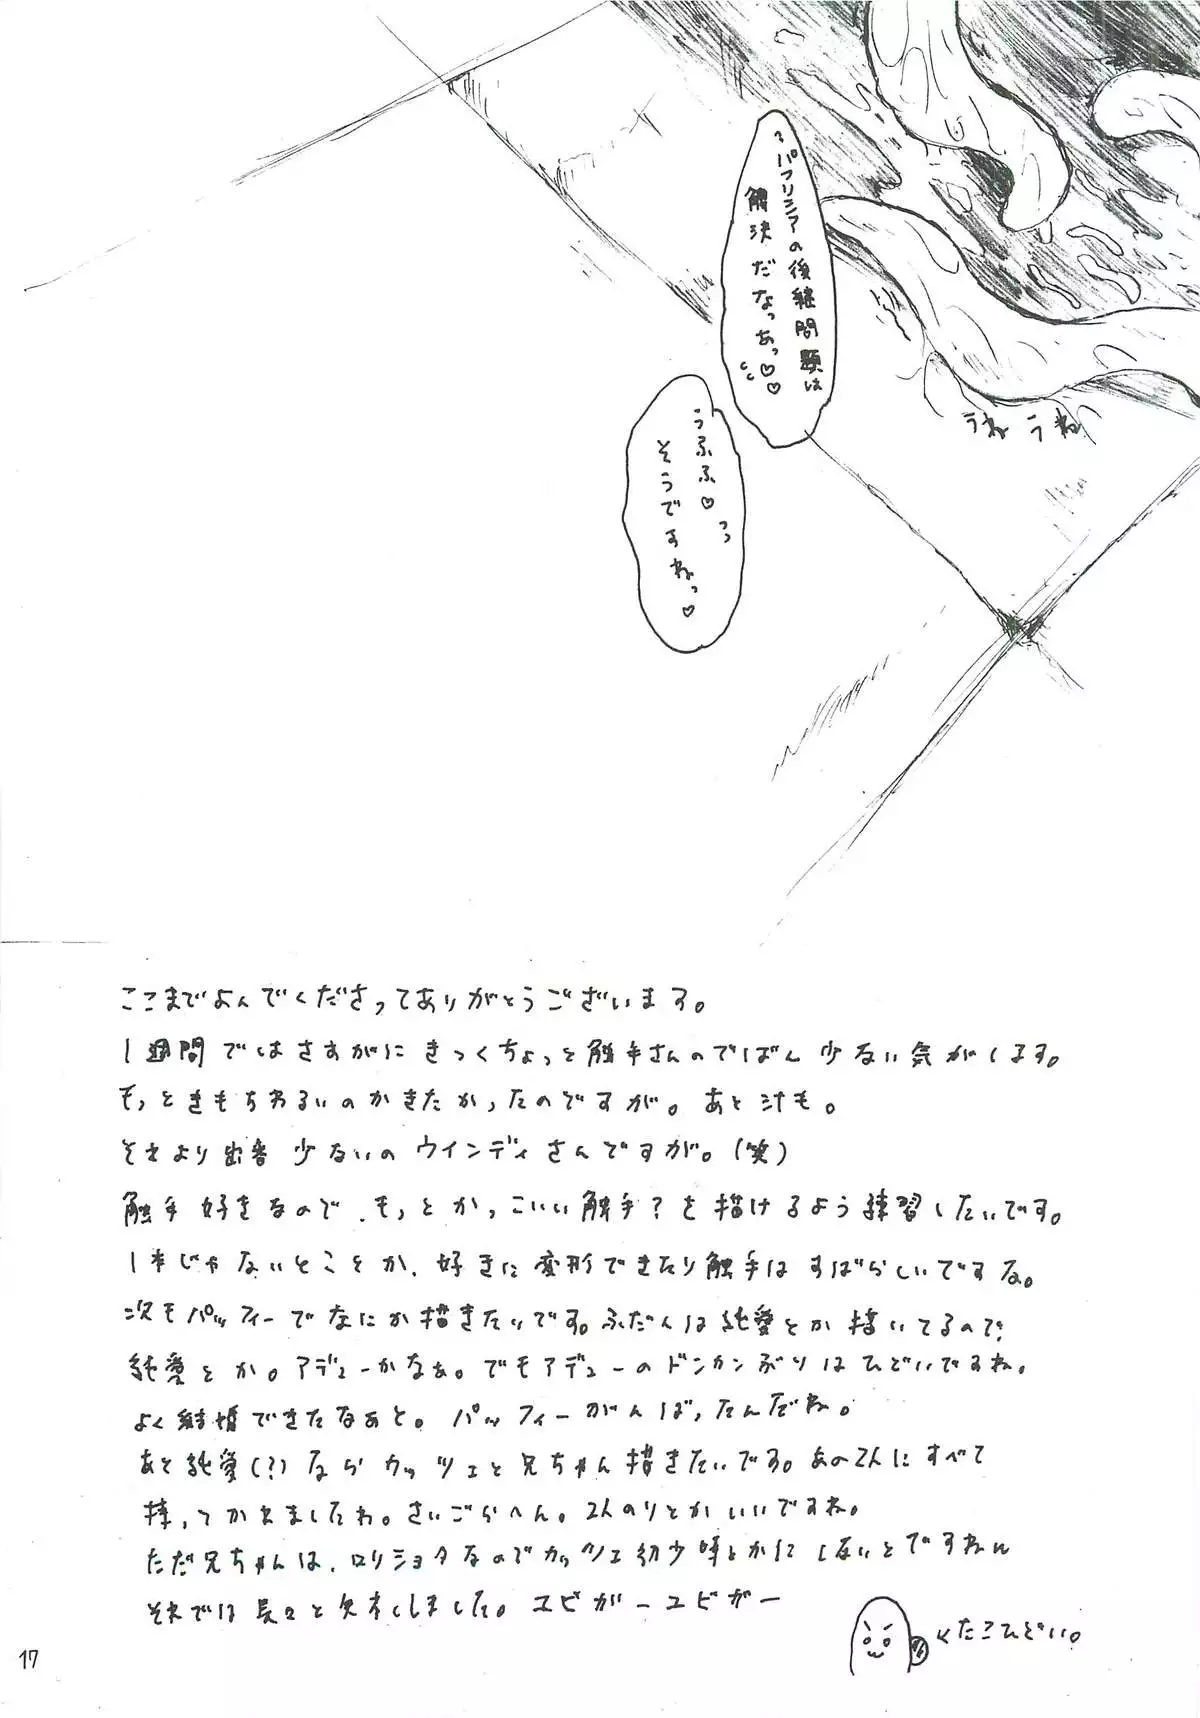 パフリシアの後継問題は
解決だなっあっ♡♡
うふふ♡
そうですねっ♡
うねうね
ここまでよんでくださってありがとうございます。
1週間ではさすがにきつくちょっと触手さんのでばん少ない気がします。
もっときもちわるいのかきたかったのですが。あと汁も。
それより出番少ないのウインディさんですが。(笑)
触手好きなので、もっとかっこいい触手?を描けるよう練習したいです。
1本じゃないとことか、好きに変形できたり触手はすばらしいですな。
次もパッフィーでなにか描きたいです。ふだんは純愛とか描いてるので
純愛とか。アデューかなぁ。でもアデューのドンカンぶりはひどいですね。
よく結婚できたなぁと。パッフィーがんばったんだね。
あと純愛(?)ならカッツェと兄ちゃん描きたいです。あの2人にすべて
持ってかれましたわ。さいごらへん。2人のりとかいいですね。
ただ兄ちゃんは、ロリショタなのでカッツェ幼少時とかにしないとですねw
それでは長々と失礼しました。ユビガーユビガー
くたこひどい。
17